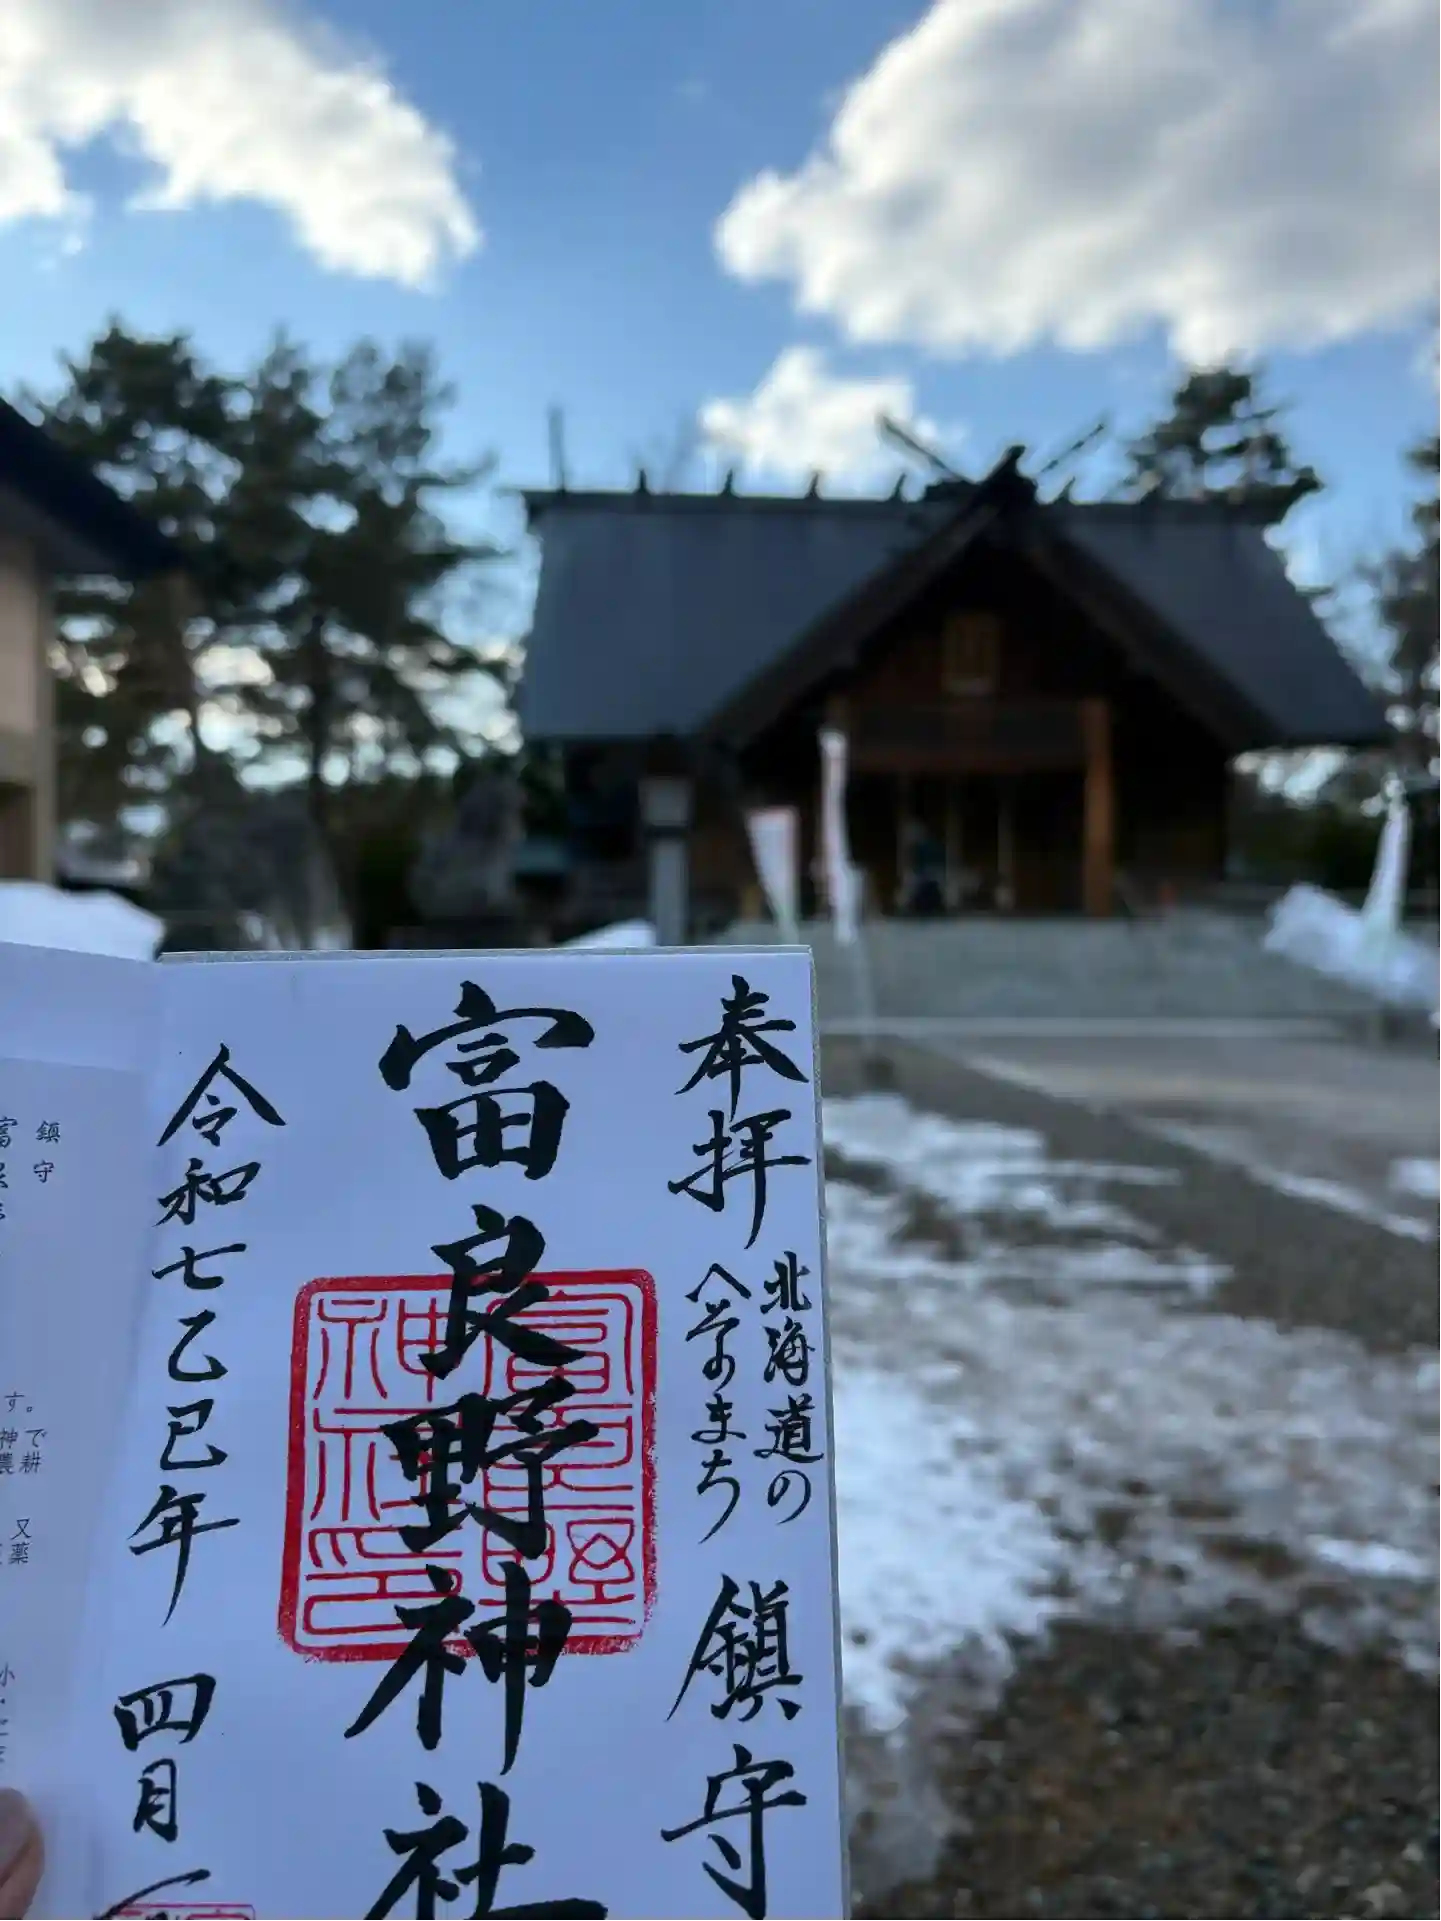 奉拝
北海道の
へそのまち
鎮守
富良野神社
令和七乙巳年 四月一
富良野
神社印
鎮守
す。
で耕
又薬